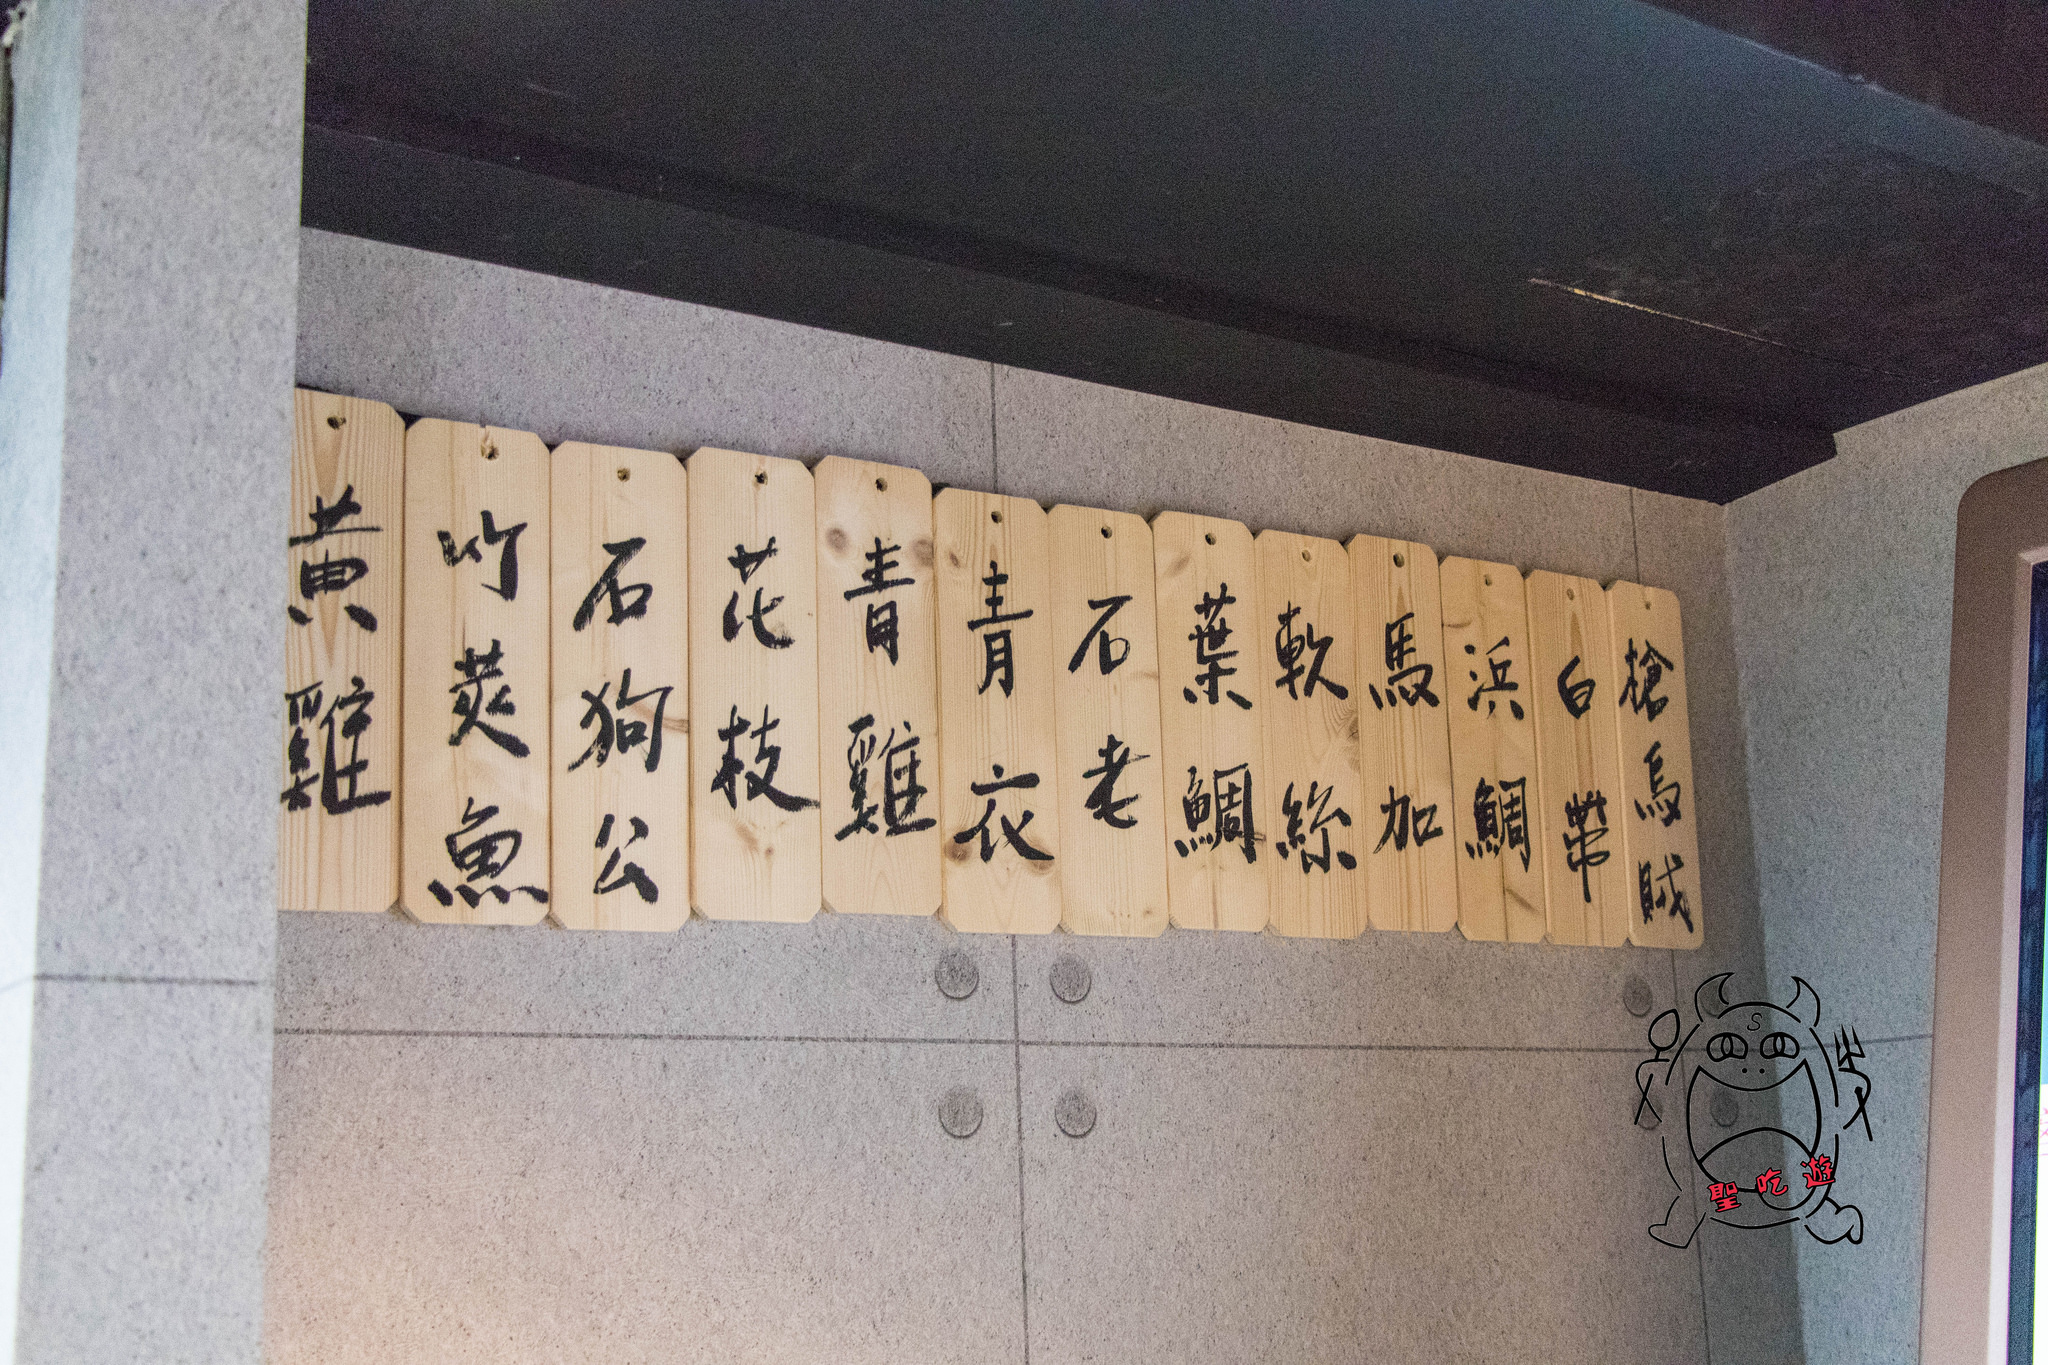 黄雞
竹莢魚
石狗公
花枝
青雞
青衣
石老
葉鯛
軟絲
馬加
浜鯛
白帶
槍烏賊
S
聖吃遊